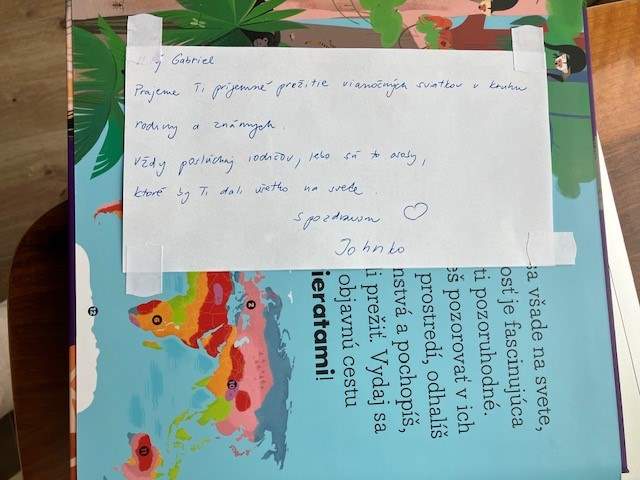 Gabriel
Prajeme Ti príjemné prežitie vianočných sviatkov v kruhu
rodiny a známych.
Vždy poslúchaj rodičov, lebo sú to osoby,
ktoré by Ti dali všetko na svete.
S pozdravom ♡
Johnko
sa všade na svete,
osť je fascinujúca
ti pozoruhodné.
eš pozorovať v ich
prostredí, odhalíš
nstvá a pochopíš,
i prežiť. Vydaj sa
objavnú cestu
ieratami!